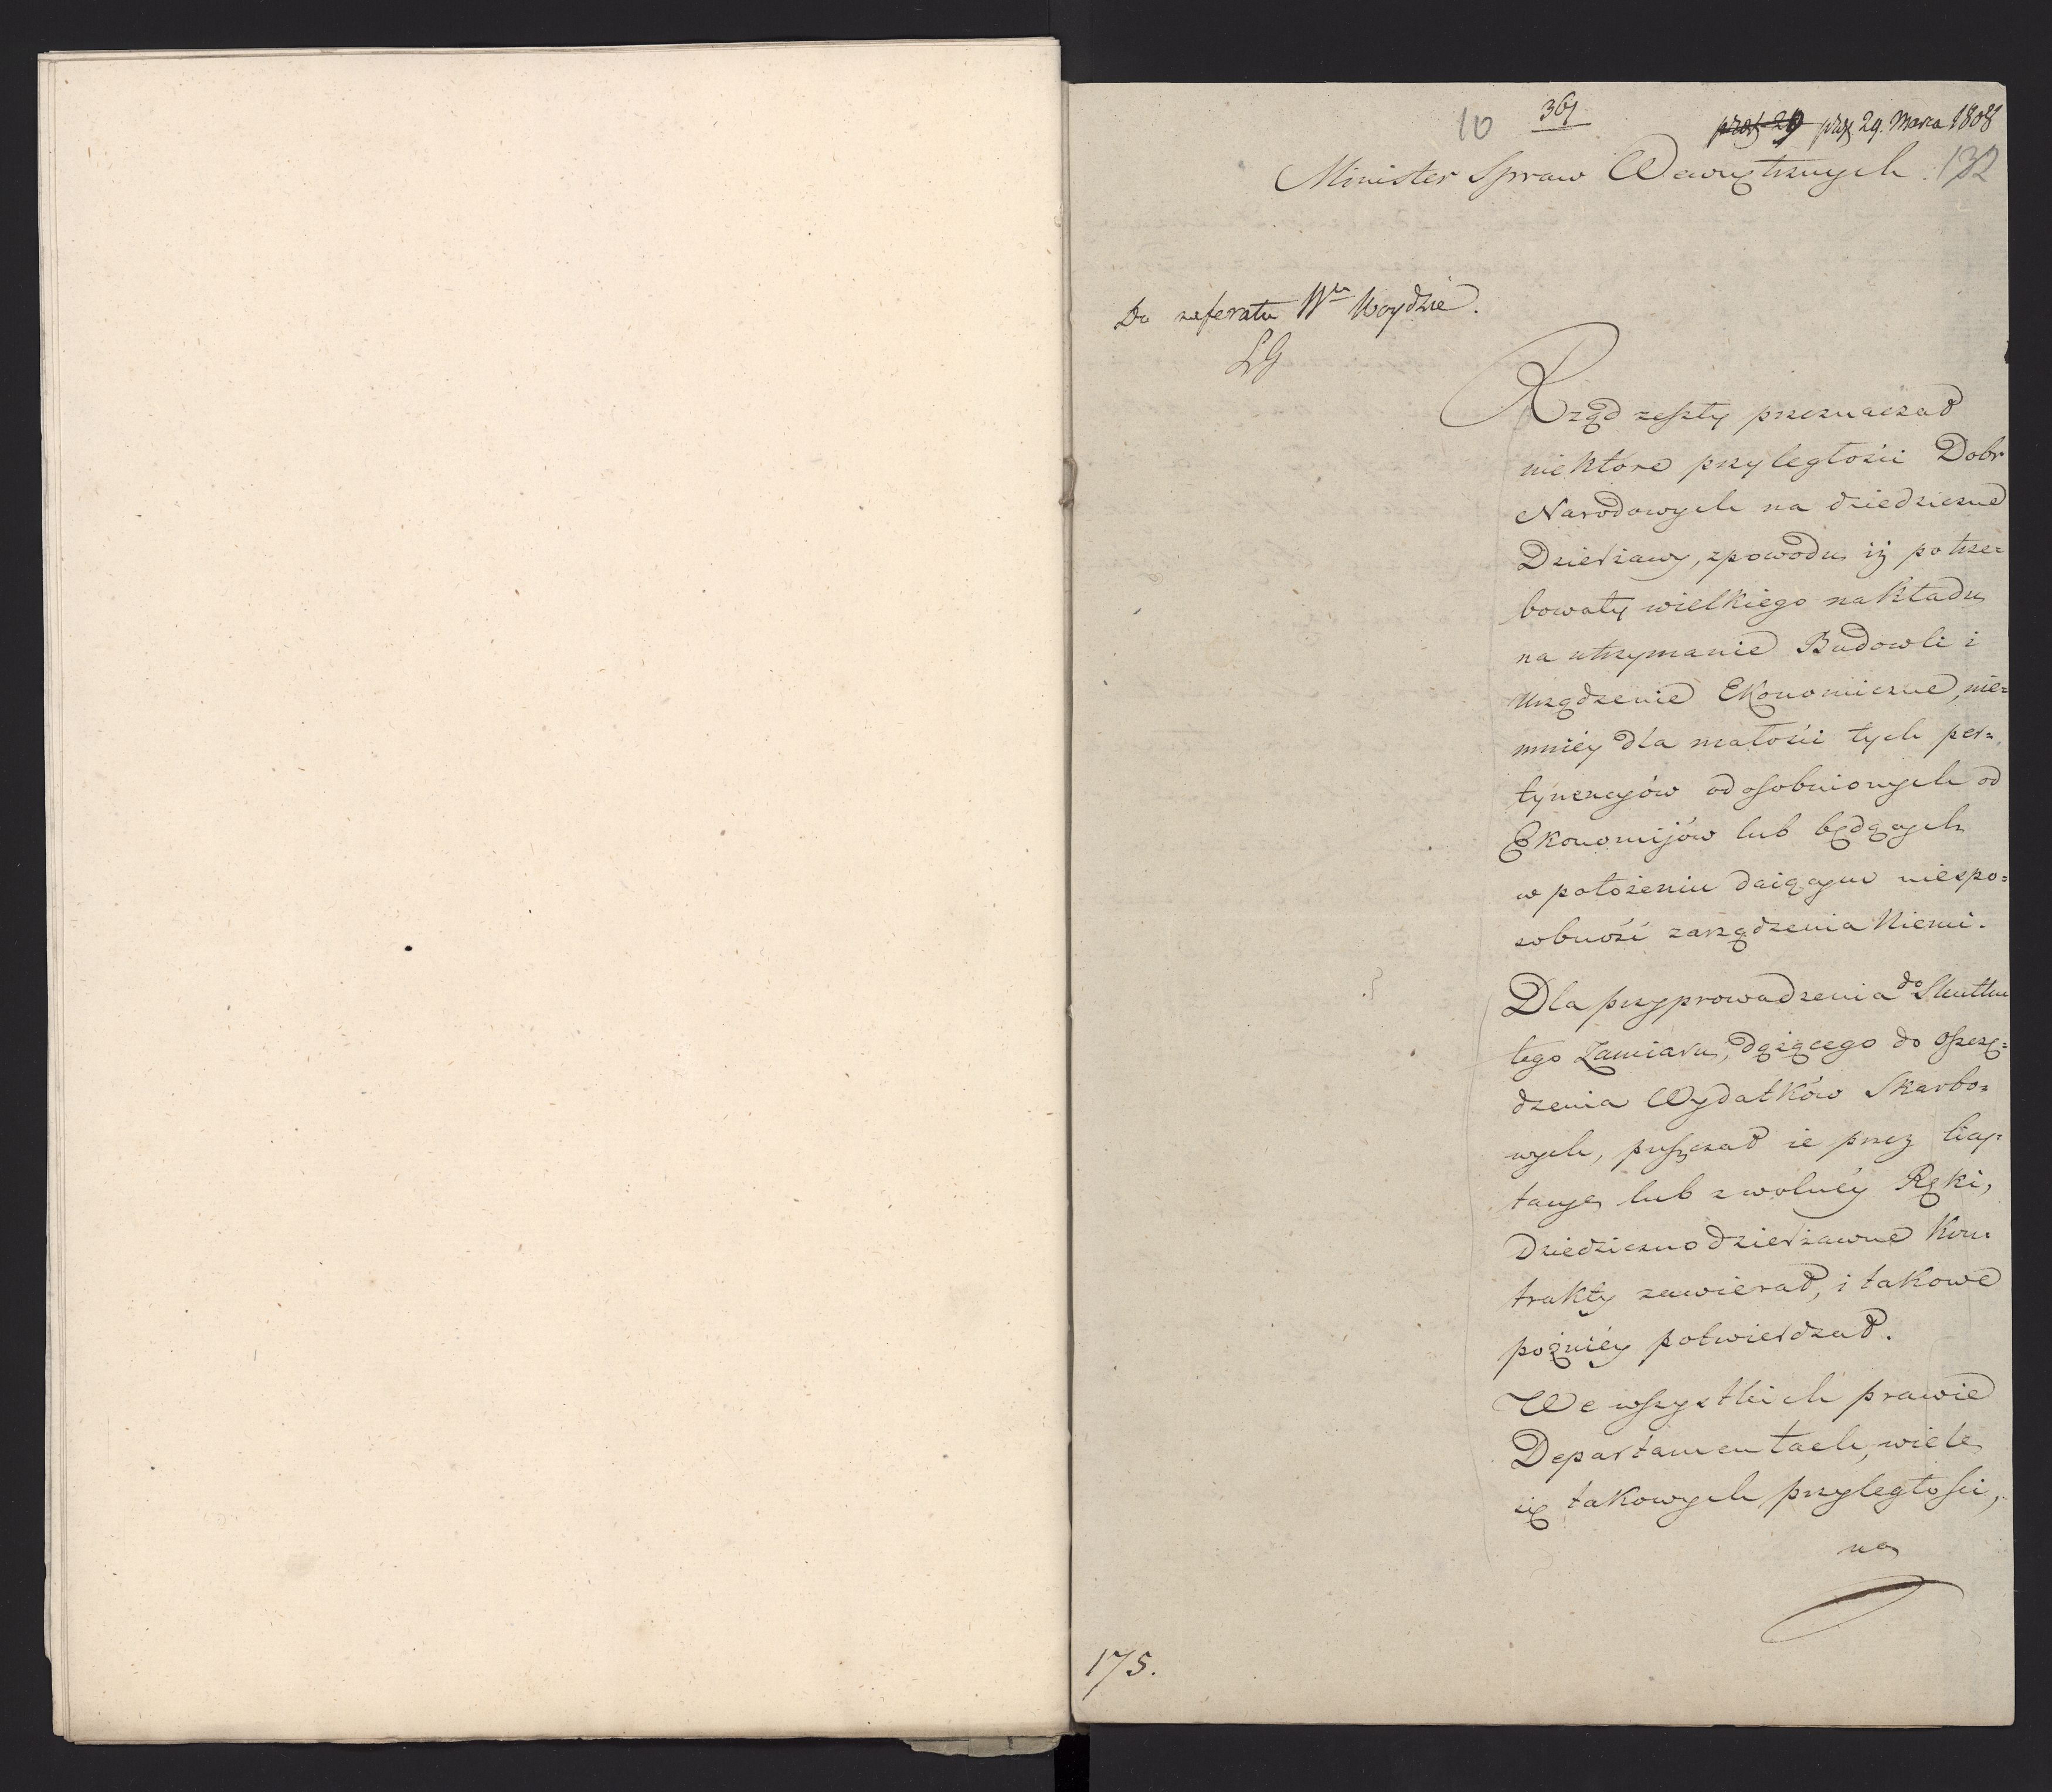 10
361
prez 29 prez 29. Marca 1808
132
Minister Spraw Wewnętrznych
Do referatu Wu Woydzie.
LG
Rząd zeszły przeznaczał
niektóre przyległości Dobr
Narodowych na dziedziczne
Dzierżawy, zpowodu iż potrze=
bowały wielkiego nakładu
na utrzymanie Budowli i
urządzenie Ekonomiczne, nie=
mniéy dla małości tych per=
tynencyów odosobnionych od
Ekonomijów lub będących
w położeniu daiącym niespo=
sobność zarządzenia Niemi.
Dla przyprowadzenia do Skutku
tego Zamiaru, dążącego do oszczę=
dzenia Wydatków Skarbo=
wych, puszczał ie przez licy=
tacye lub z wolnéy Ręki,
Dziedziczno dzierżawne Kon=
trakty zawierał, i takowe
poźniéy potwierdzał.
We wszystkich prawie
Departamentach, wiele
się takowych przyległości,
na
175.